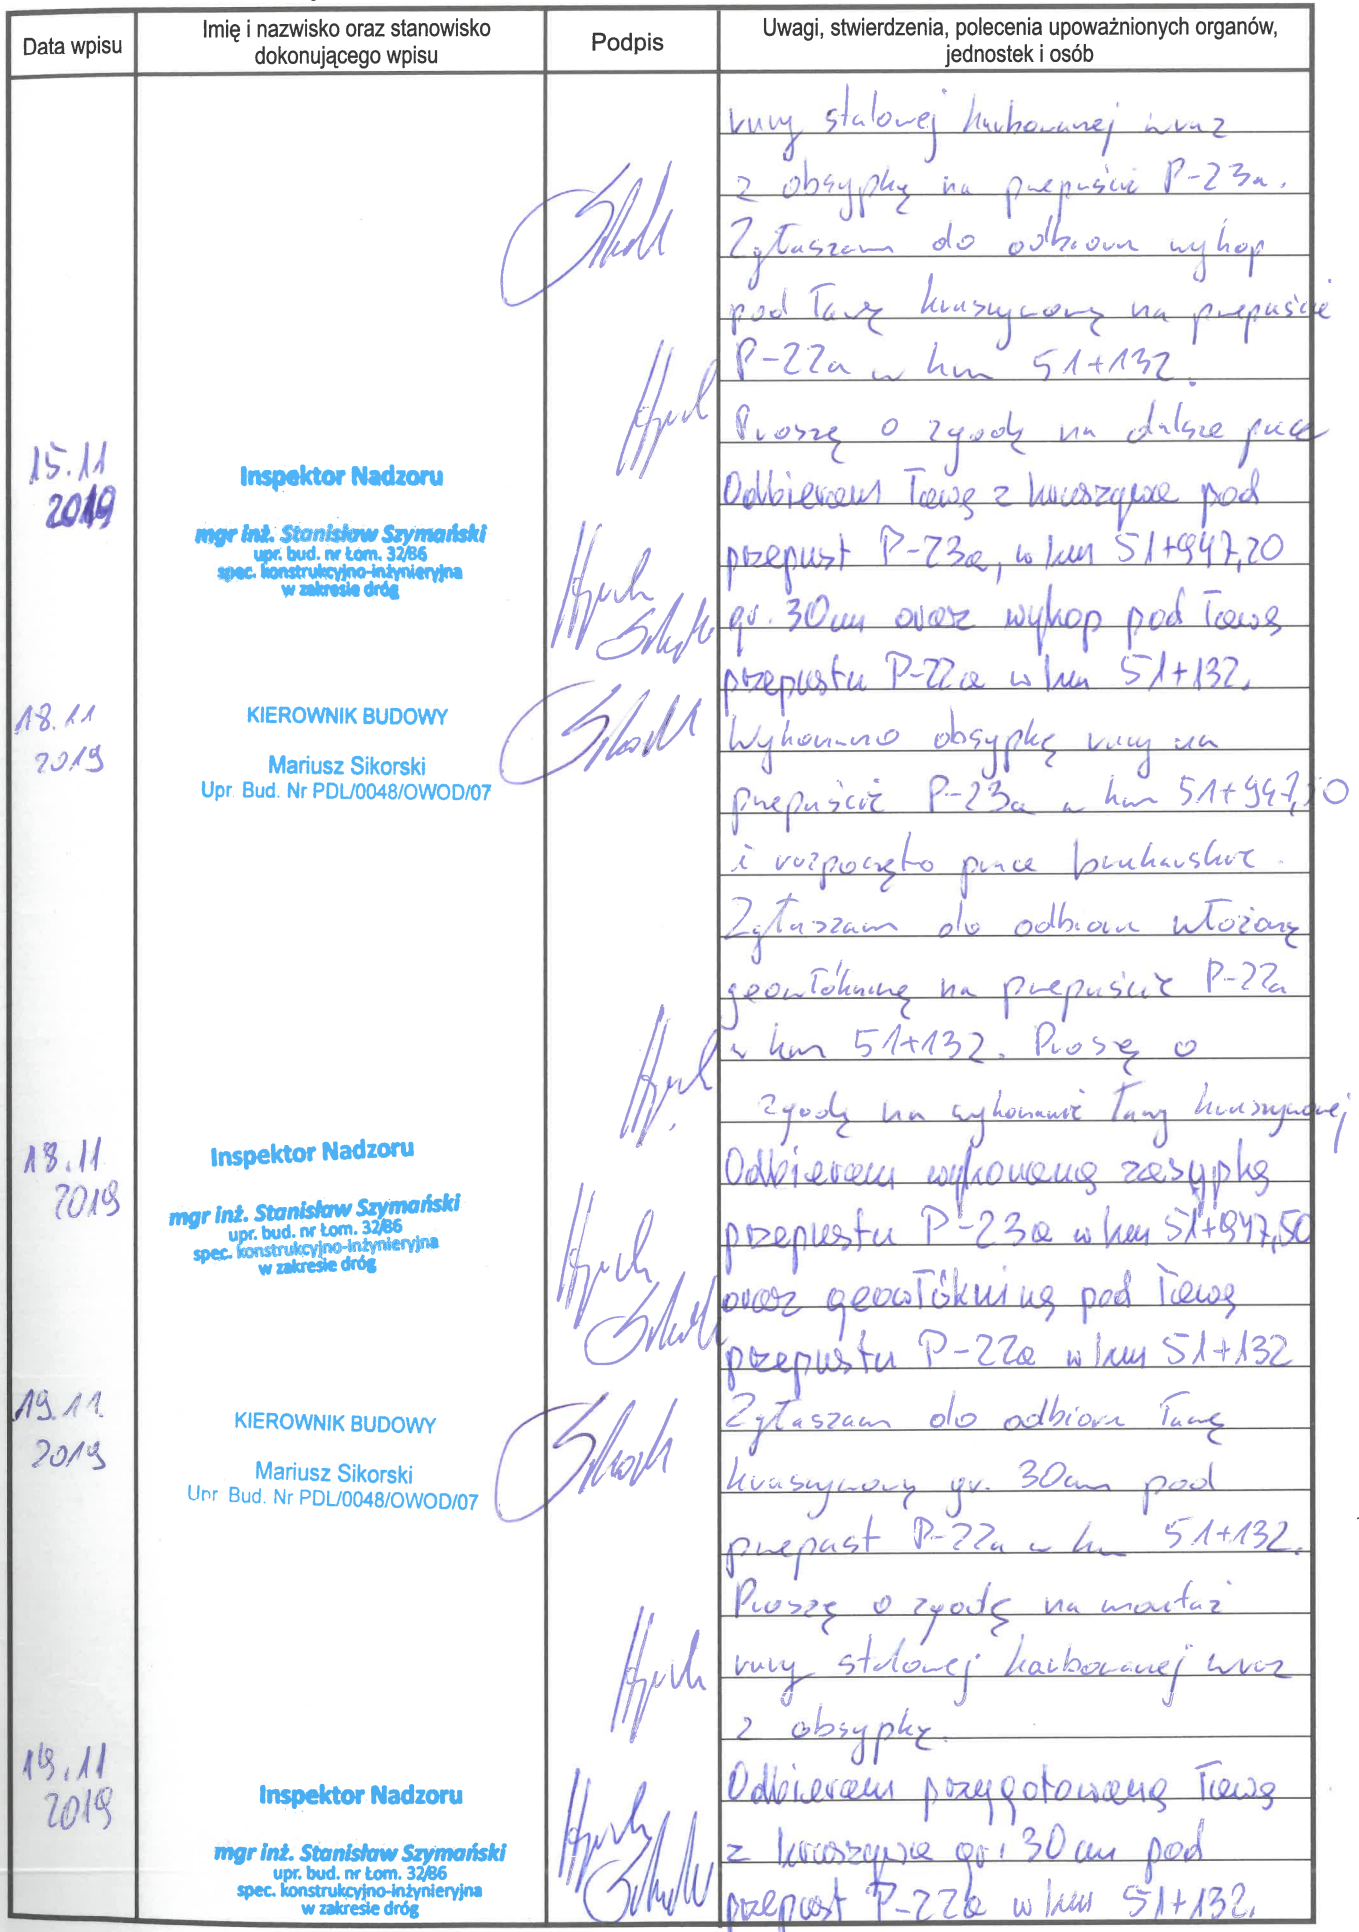 Data wpisu
Imię i nazwisko oraz stanowisko
dokonującego wpisu
Podpis
Uwagi, stwierdzenia, polecenia upoważnionych organów,
jednostek i osób
rury stalowej karbowanej wraz
z obsypką na przepuście P-23a.
Zgłaszam do odbioru wykop
pod ławę kruszywową na przepuście
P-22a w km 51+132.
Proszę o zgodę na dalsze prace
15.11
2019
Inspektor Nadzoru
mgr inż. Stanisław Szymański
upr. bud. nr Łom. 32/86
spec. konstrukcyjno-inżynieryjna
w zakresie dróg
Odbieram ławę z kruszywa pod
przepust P-23a, w km 51+947,20
gr. 30cm oraz wykop pod ławę
przepustu P-22a w km 51+132.
18.11
2019
KIEROWNIK BUDOWY
Mariusz Sikorski
Upr. Bud. Nr PDL/0048/OWOD/07
Wykonano obsypkę rury na
przepuście P-23a w km 51+947,50
i rozpoczęto prace brukarskie.
Zgłaszam do odbioru włożoną
geowłókninę na przepuście P-22a
w km 51+132. Proszę o
zgodę na wykonanie ławy kruszywowej
18.11
2019
Inspektor Nadzoru
mgr inż. Stanisław Szymański
upr. bud. nr Łom. 32/86
spec. konstrukcyjno-inżynieryjna
w zakresie dróg
Odbieram wykonaną zasypkę
przepustu P-23a w km 51+947,50
oraz geowłókninę pod ławę
przepustu P-22a w km 51+132
19.11.
2019
KIEROWNIK BUDOWY
Mariusz Sikorski
Upr. Bud. Nr PDL/0048/OWOD/07
Zgłaszam do odbioru ławę
kruszywową gr. 30cm pod
przepust P-22a w km 51+132.
Proszę o zgodę na montaż
rury stalowej karbowanej wraz
z obsypką.
19.11
2019
Inspektor Nadzoru
mgr inż. Stanisław Szymański
upr. bud. nr Łom. 32/86
spec. konstrukcyjno-inżynieryjna
w zakresie dróg
Odbieram przygotowaną ławę
z kruszywa gr. 30 cm pod
przepust P-22a w km 51+132.